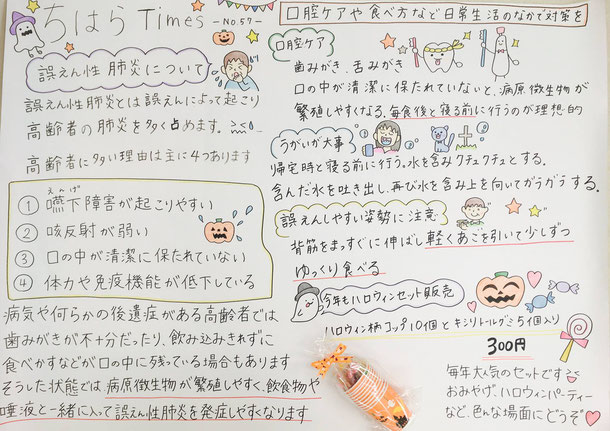 ちはら Times -NO.57-
誤えん性 肺炎について
誤えん性肺炎とは誤えんによって起こり
高齢者の肺炎を多く占めます。
高齢者に多い理由は主に4つあります
えんげ
① 嚥下障害が起こりやすい
② 咳反射が弱い
③ 口の中が清潔に保たれていない
④ 体力や免疫機能が低下している
病気や何らかの後遺症がある高齢者では
歯みがきが不十分だったり、飲み込みきれずに
食べかすなどが口の中に残っている場合もあります
そうした状態では、病原微生物が繁殖しやすく、飲食物や
唾液と一緒に入って誤えん性肺炎を発症しやすくなります
口腔ケアや食べ方など日常生活のなかで対策を
口腔ケア
歯みがき、舌みがき
口の中が清潔に保たれていないと、病原微生物が
繁殖しやすくなる。毎食後と寝る前に行うのが理想的
うがいが大事
帰宅時と寝る前に行う。水を含みクチュクチュとする。
含んだ水を吐き出し、再び水を含み上を向いてガラガラする。
誤えんしやすい姿勢に注意
背筋をまっすぐに伸ばし軽くあごを引いて少しずつ
ゆっくり食べる
今年もハロウィンセット販売
ハロウィン柄コップ10個とキシリトールグミ5個入り
300円
毎年大人気のセットです
おみやげ、ハロウィンパーティー
など、色んな場面にどうぞ